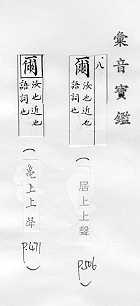 彙音寶鑑
八
爾 汝也近也
語詞也
(居上上聲
P.506)
爾 汝也近也
語詞也
(龜上上聲
P.471)